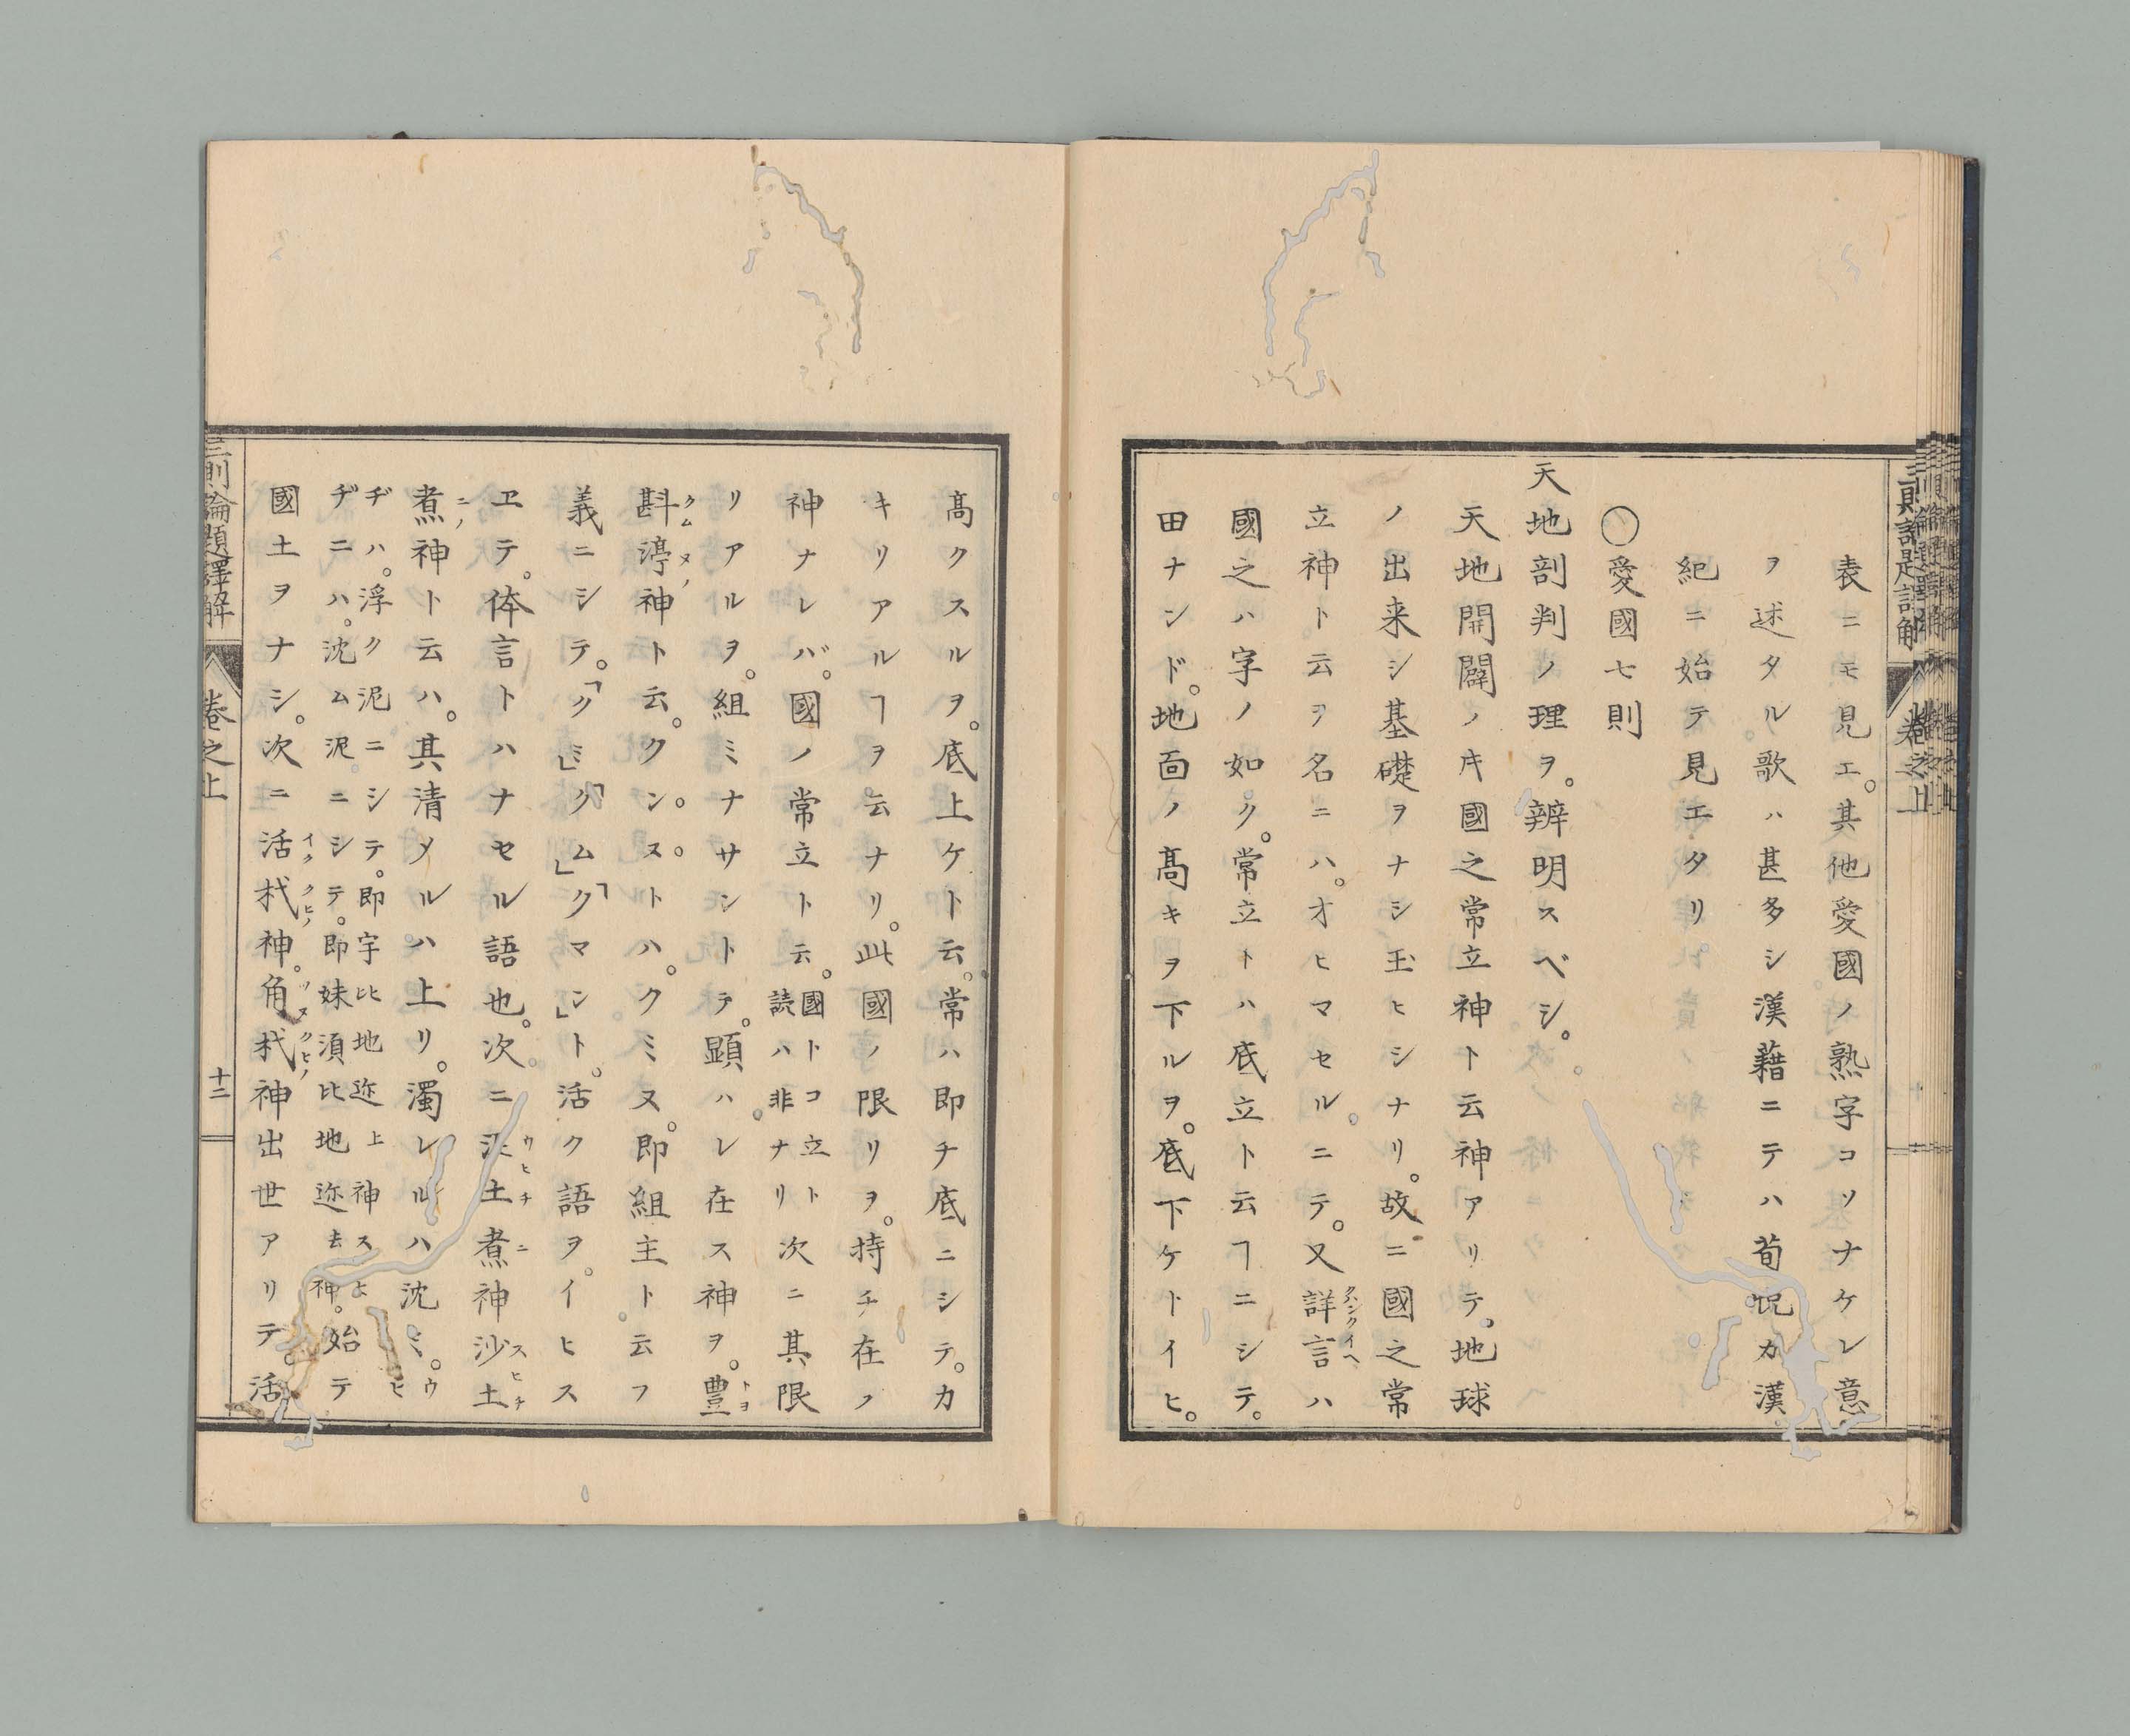 表ニモ見エ。其他愛國ノ熟字コソナケレ意
ヲ述タル歌ハ甚多シ漢藉ニテハ荀悦カ漢
紀ニ始テ見エタリ
〇愛國七則
天地剖判ノ理ヲ。辨明スベシ。
天地開闢ノ𪜈國之常立神ト云神アリテ。地球
ノ出来シ基礎ヲナシ玉ヒシナリ。故ニ國之常
立神ト云ヲ名ニハ。オヒマセルニテ。又詳言ハ
國之ハ字ノ如ク。常立トハ底立ト云ヿニシテ。
田ナンド。地面ノ髙キヲ下ルヲ。底下ケトイヒ。
髙クスルヲ。底上ケト云。常ハ即チ底ニシテ。カ
キリアルヿヲ云ナリ。此國ノ限リヲ。持チ在ノ
神ナレバ。國ノ常立ト云。國トコ立ト読ハ非ナリ次ニ其限
リアルヲ。組ミナサントテ。顕ハレ在ス神ヲ。豊
斟渟神ト云。クン。ヌ。トハ。クミヌ。即組主ト云フ
義ニシテ。「クミ」「クム」「クマン」ト。活ク語ヲ。イヒス
ヱテ。体言トハナセル語也。次ニ泥土煮神沙土
煮神ト云ハ。其清メルハ上リ。濁レルハ沈ミ。ウヒ
ヂハ。浮ク泥ニシテ。即宇比地迩上神スヒ
ヂニハ。沈ム泥ニシテ。即妹須比地迩去神。始テ
國土ヲナシ。次ニ活杙神。角杙神出世アリテ。活
三則論題譯解
巻之上
十二